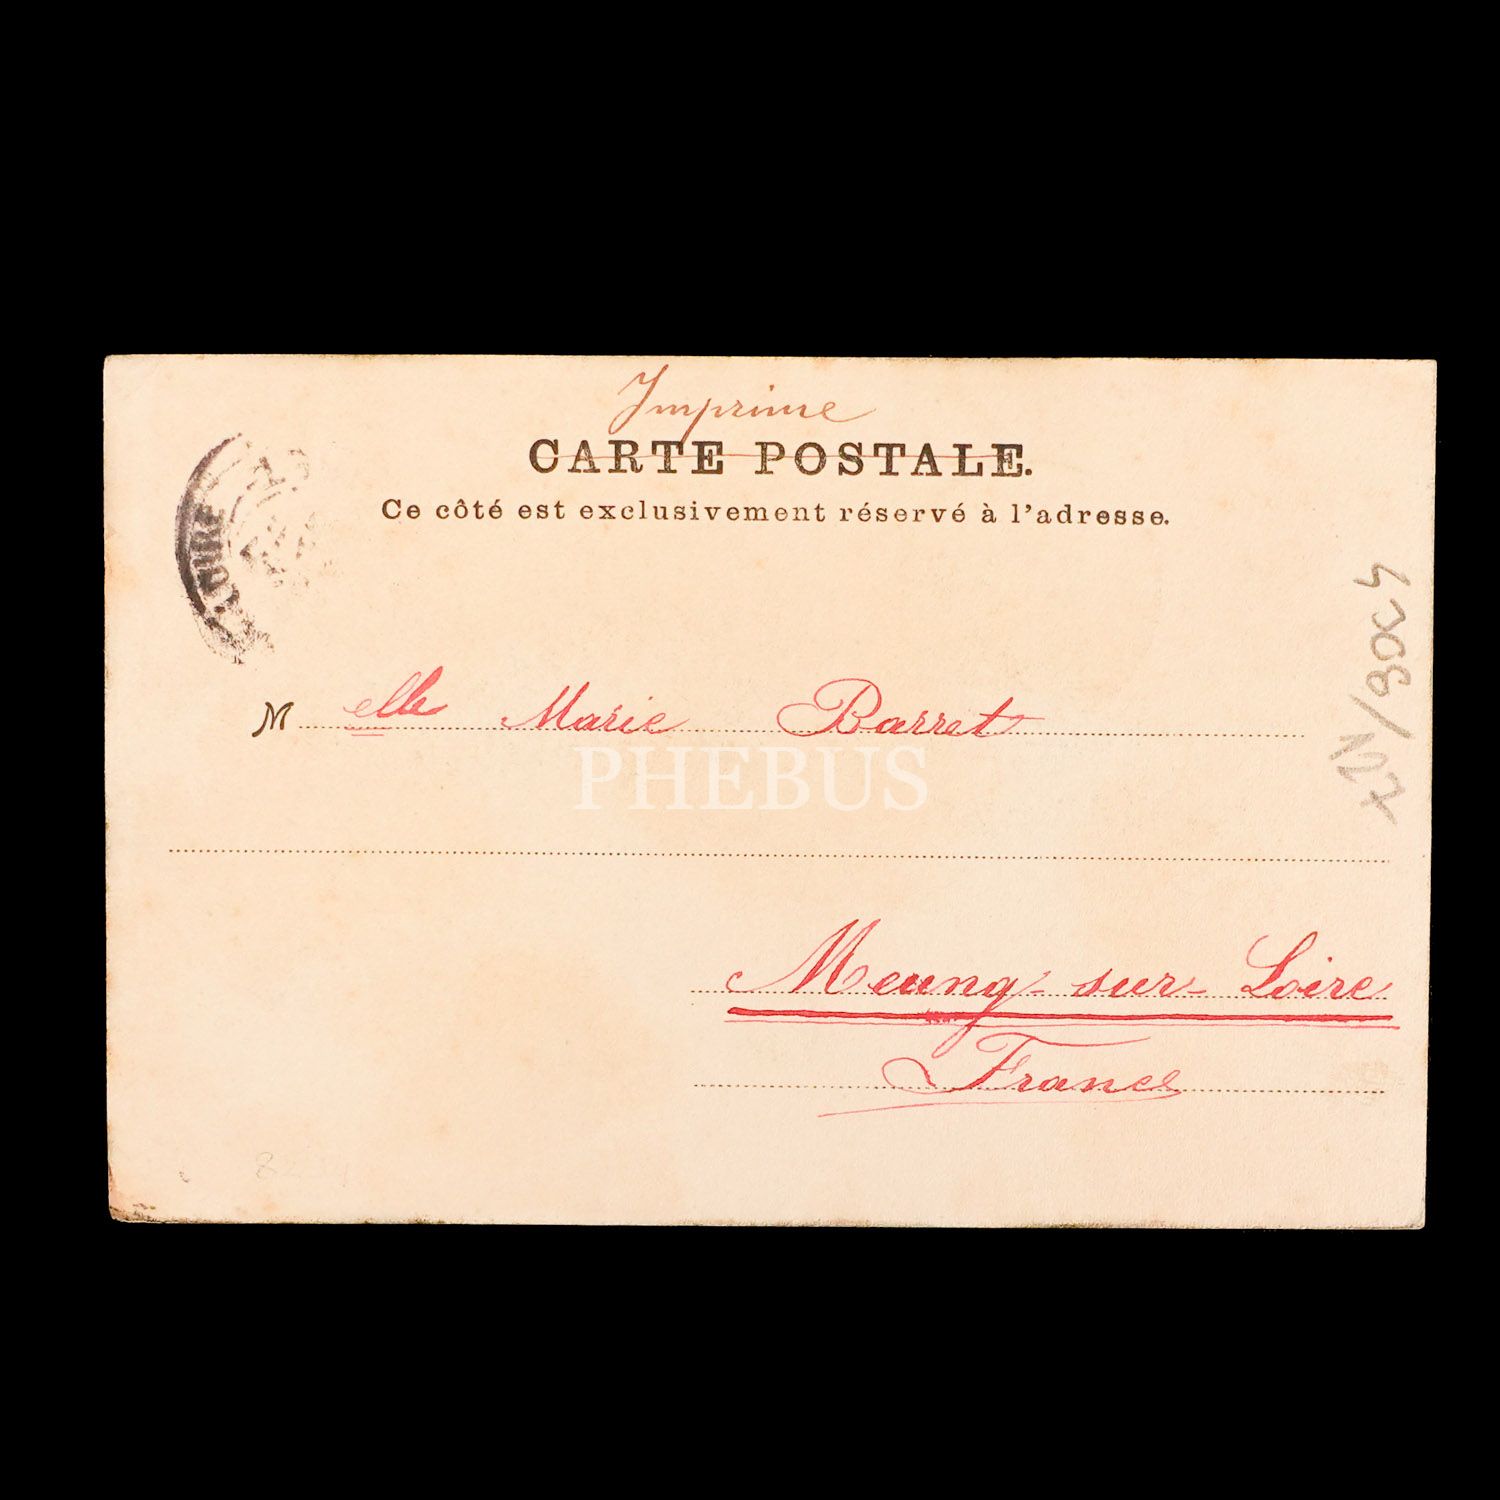 Imprime
CARTE POSTALE.
Ce côté est exclusivement réservé à l'adresse.
M elle Marie Barret
PHEBUS
Meung-sur-Loire
France